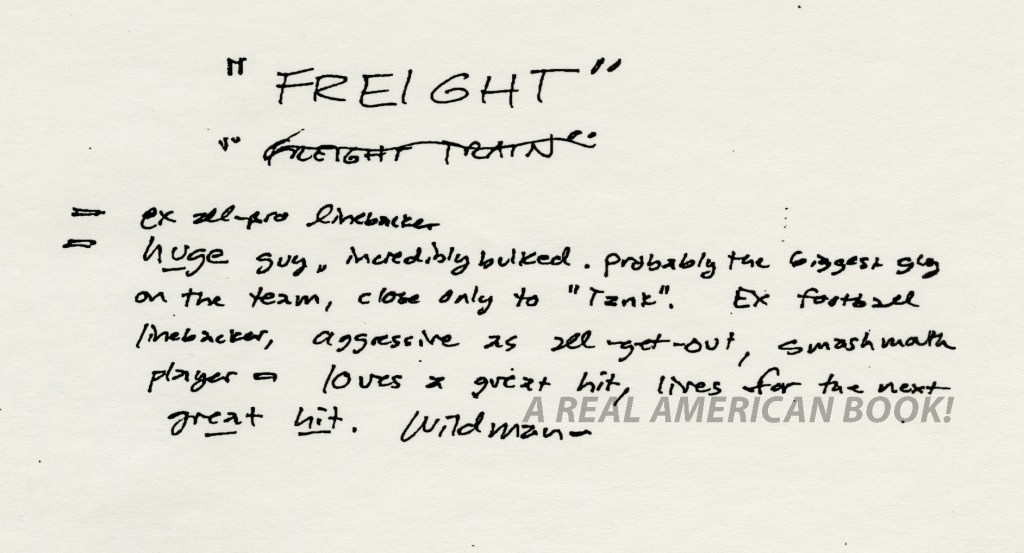 "FREIGHT"
"FREIGHT TRAIN"
= ex all-pro linebacker
= huge guy, incredibly bulked. probably the biggest guy
on the team, close only to "Tank". Ex football
linebacker, aggressive as all-get-out, smashmath
player = loves a great hit, lives for the next
great hit. Wildman-
A REAL AMERICAN BOOK!